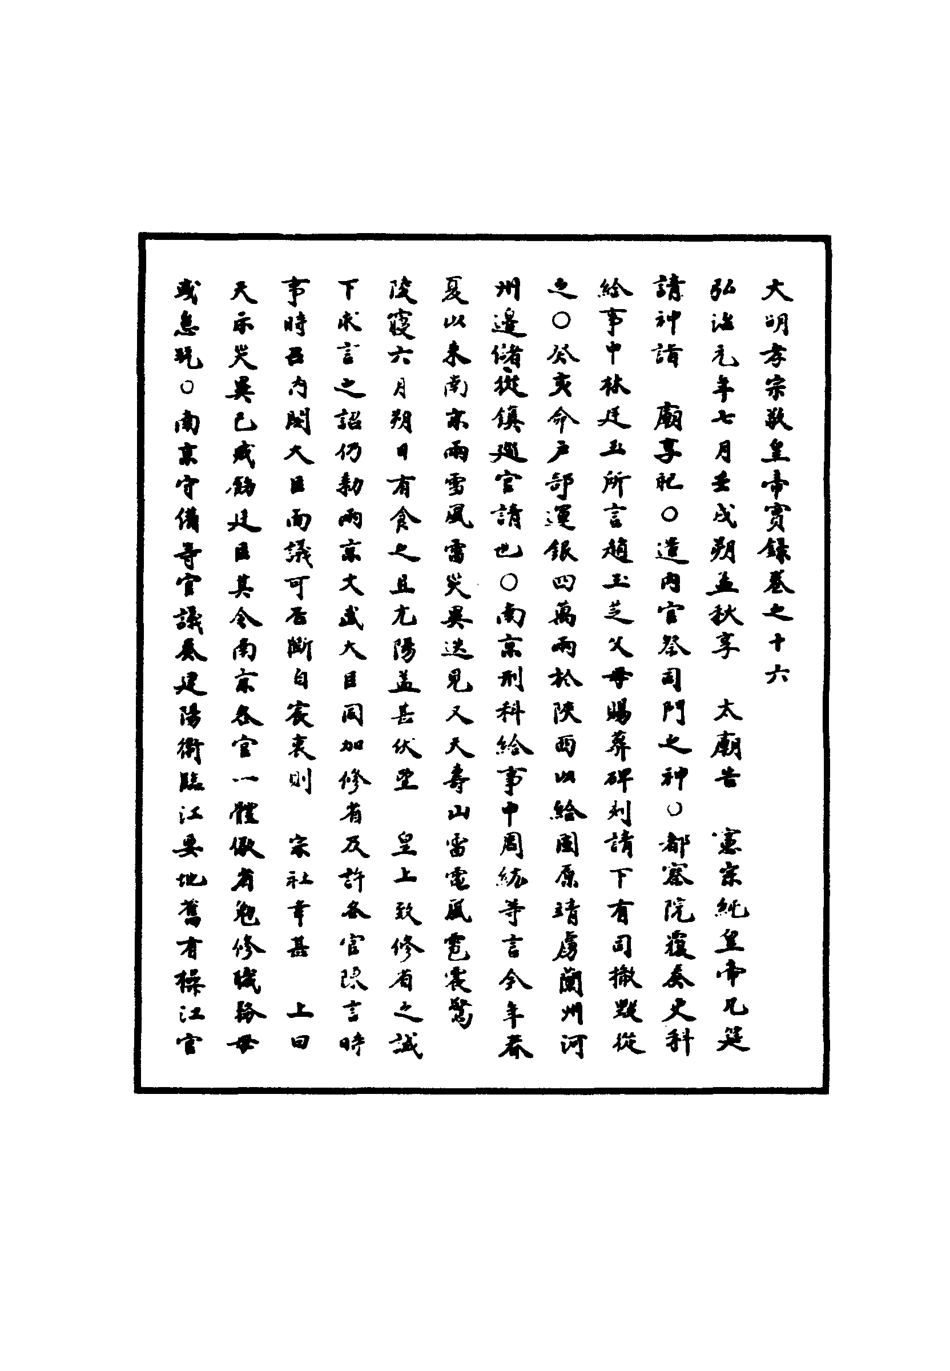 大明孝宗敬皇帝實錄卷之十六
弘治元年七月壬戌朔孟秋享 太廟告 憲宗純皇帝几筵
請神詣 廟享祀○遣內官祭司門之神○都察院覆奏吏科
給事中林廷玉所言趙玉芝父母賜葬碑刻請下有司撤毀從
之○癸亥命戶部運銀四萬兩於陝西以給固原靖虜蘭州河
州邊儲從鎮巡官請也○南京刑科給事中周紘等言今年春
夏以來南京雨雪風雷災異迭見又天壽山雷電風雹震驚
陵寢六月朔日有食之且亢陽益甚伏望 皇上致修省之誠
下求言之詔仍勑兩京文武大臣同加修省及許各官陳言時
事時召內閣大臣面議可否斷自宸衷則 宗社幸甚 上曰
天示災異已戒飭廷臣其令南京各官一體儆省勉修職務毋
或怠玩○南京守備等官議奏建陽衛臨江要地舊有操江官